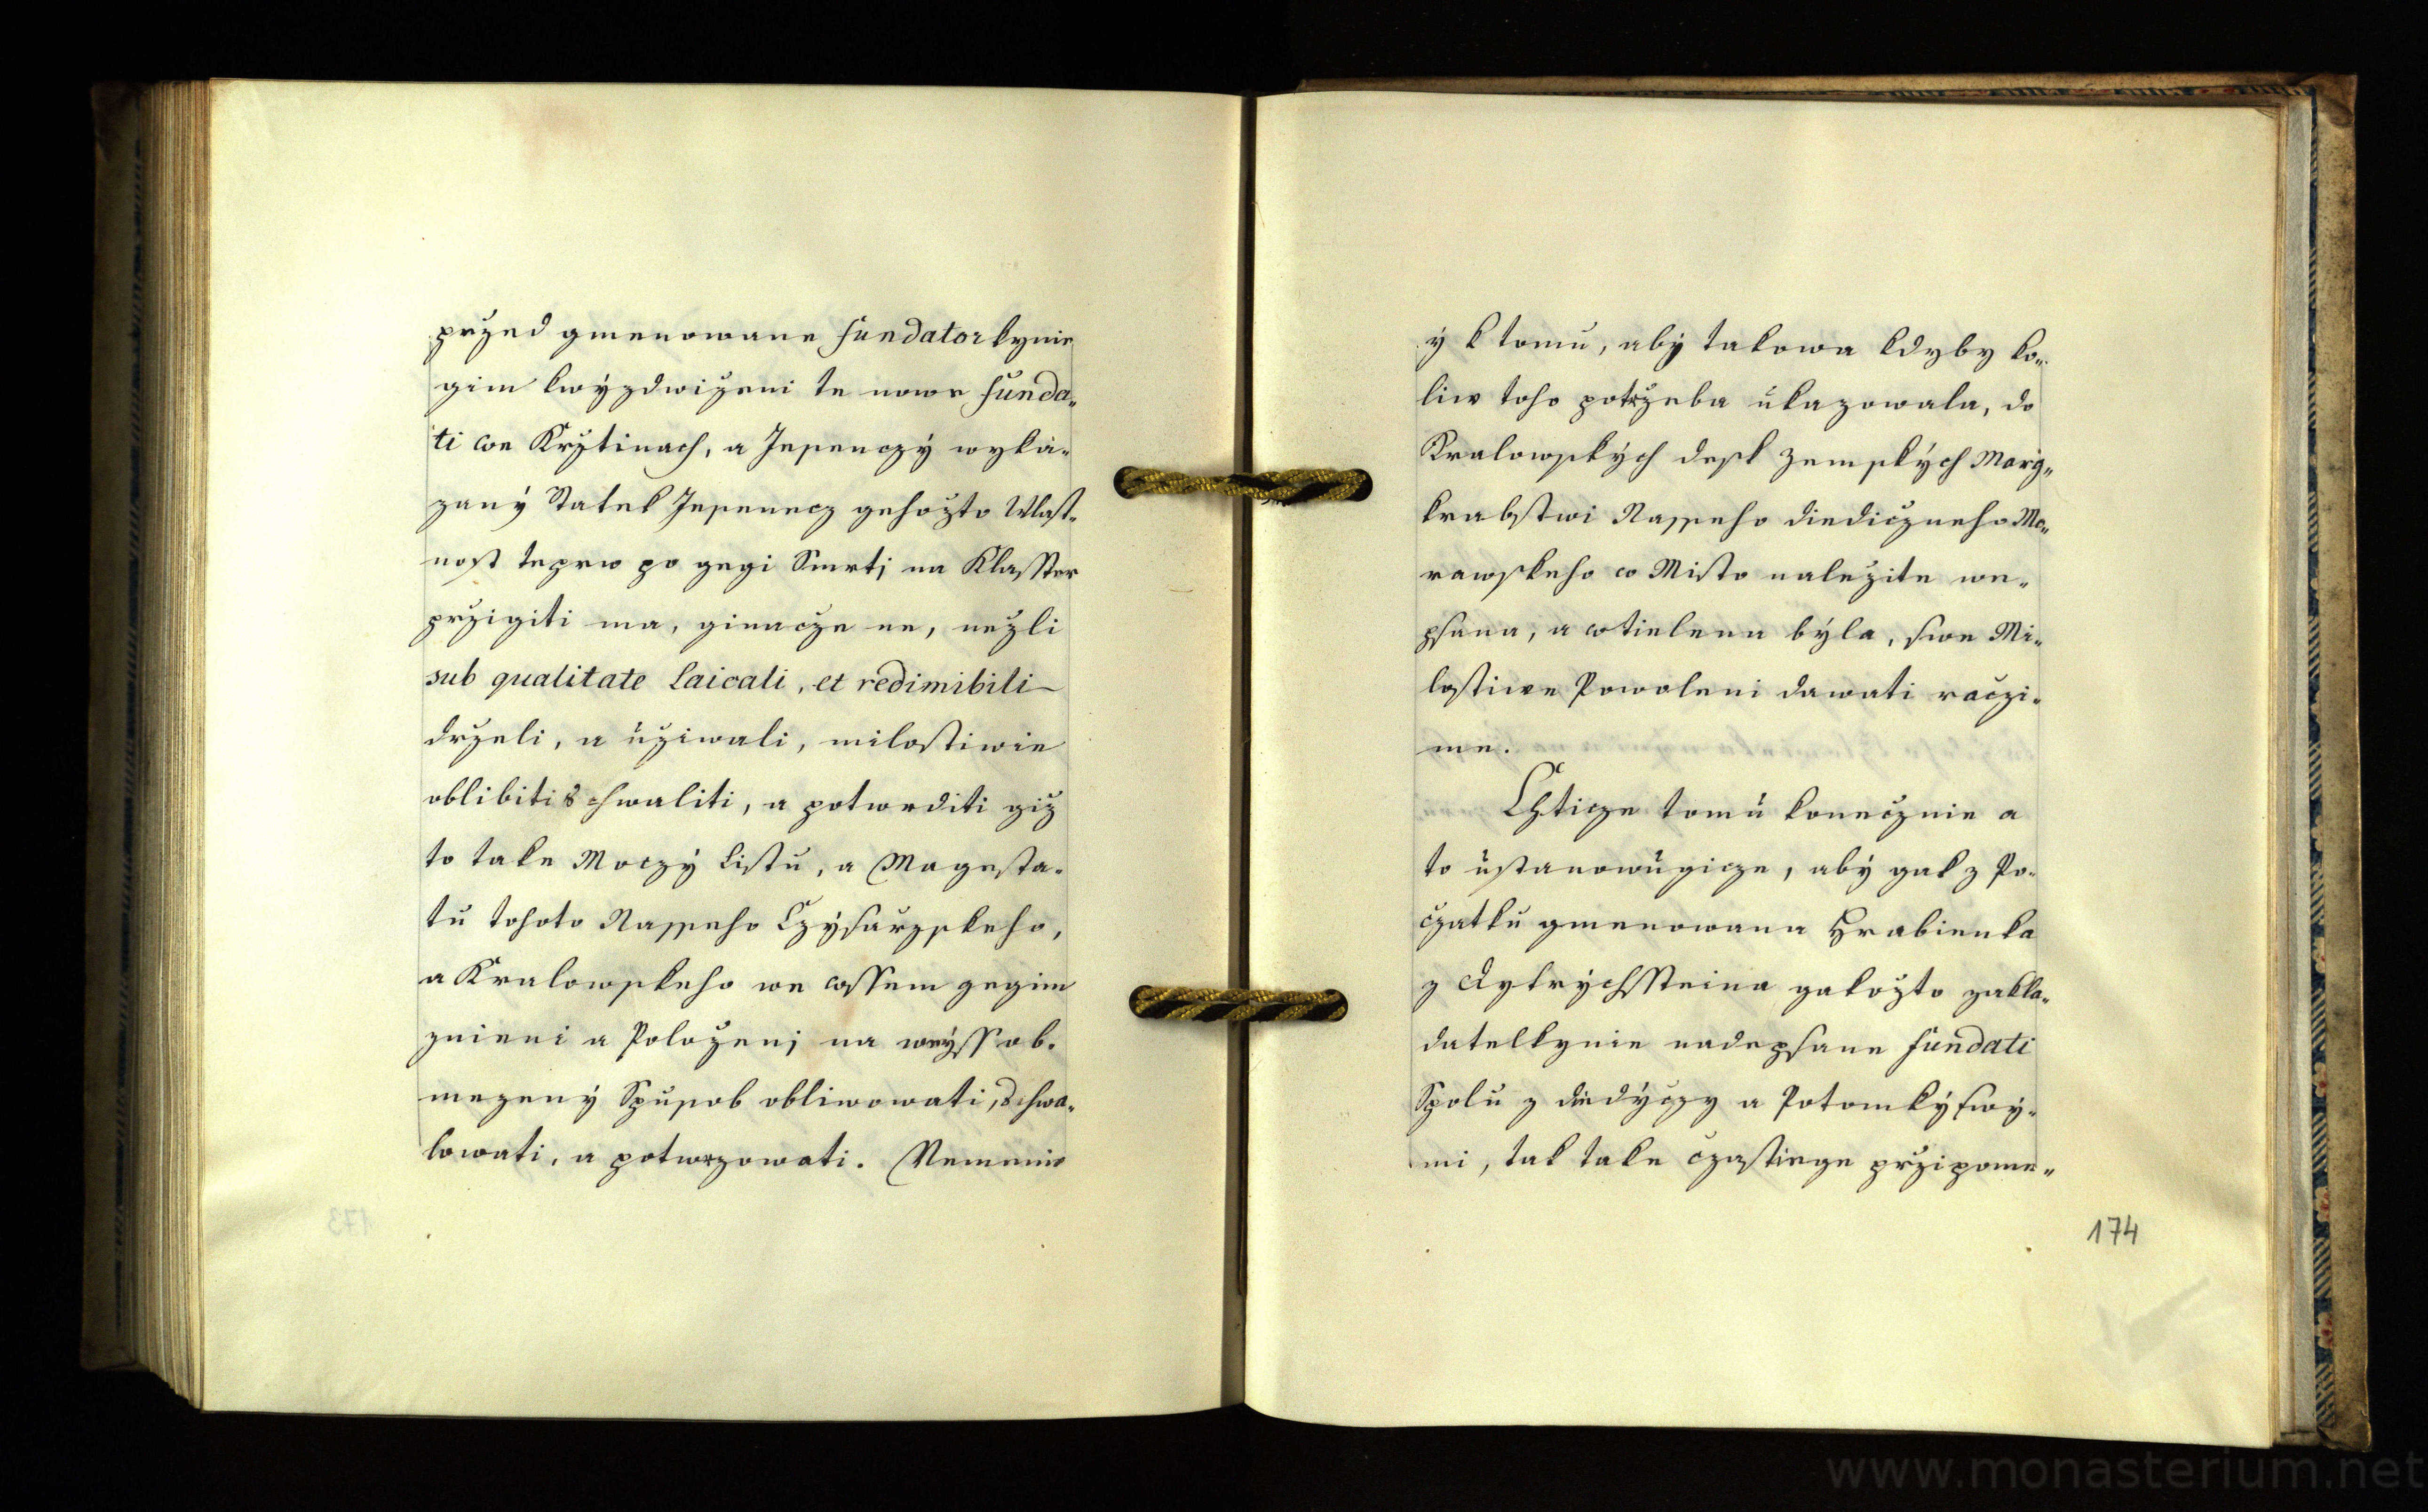 przed gmenowane Fundatorkynie
gim kwyzdwiżeni te nowe Funda„
ti we Krżtinach, a Jesenczý wyká„
zaný Statek Jesenecz gehożto Wlast„
nost teprw po gegi Smrtj na Klasster
przigiti ma, ginacze ne, neżli
sub qualitate Laicali, et redimibili
drżeli, a użiwali, milostiwie
oblibiti schwaliti, a potwrditi giż
to take Moczý Listu, a Magesta„
tu tohoto Nasseho Czýsarzskeho,
a Kralowskeho we wssem gegim
znieni a Położenj na weýss ob„
mezený Spusob obliwowati, schwa„
lowati, a potwrzowati. Nemenie
ý k tomu, abý takowa kdyby ko„
liw toho potrzeba ukazowala, do
Kralowských desk Zemských Marg„
krabstwi Nasseho diedicżneho Mo„
rawskeho w Misto należite we„
psana, a wtielena býla, swe Mi„
lostiwe Powoleni dawati raczi„
me.
Chticze tomu konecżnie a
to ustanowugicze, abý gak z Po„
cżatku gmenowana Hrabienka
z Dytrychssteina gakożto zakla„
datelkynie nadepsane Fundati
Spolu z diedýczy a Potomký swý„
mi, tak take czastiege przipome„
174
173
www.monasterium.net